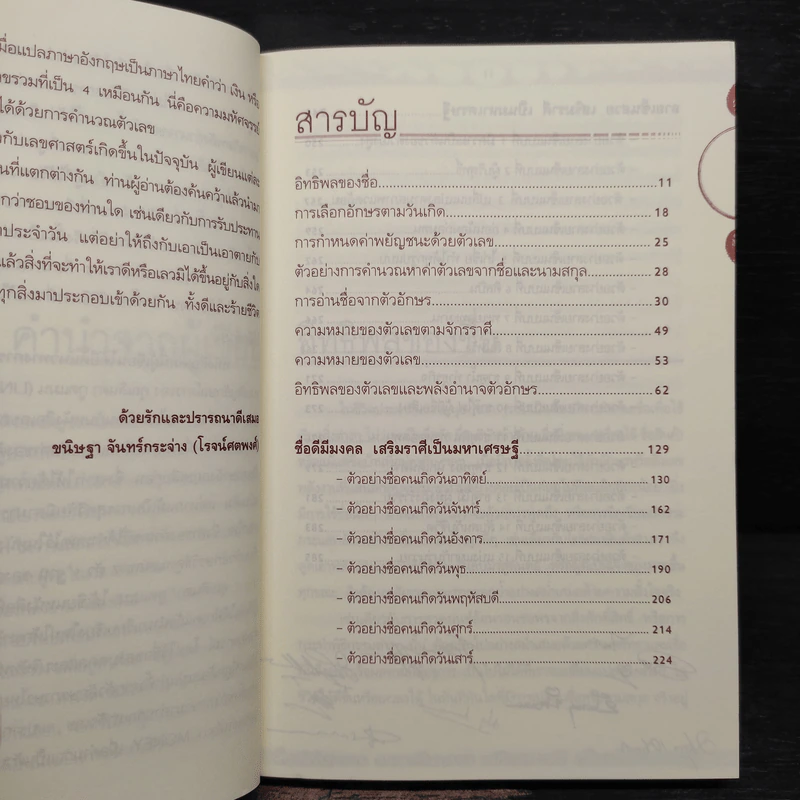 เมื่อแปลภาษาอังกฤษเป็นภาษาไทยคำว่า เงิน หรือ
ขรวมที่เป็น 4 เหมือนกัน นี่คือความมหัศจรรย์
ได้ด้วยการคำนวณตัวเลข
งกับเลขศาสตร์เกิดขึ้นในปัจจุบัน ผู้เขียนแต่ละ
นที่แตกต่างกัน ท่านผู้อ่านต้องค้นคว้าแล้วนำมา
กว่าชอบของท่านใด เช่นเดียวกับการรับประทาน
าประจำวัน แต่อย่าให้ถึงกับเอาเป็นเอาตายกับ
แล้วสิ่งที่จะทำให้เราดีหรือเลวมิได้ขึ้นอยู่กับสิ่งใด
ทุกสิ่งมาประกอบเข้าด้วยกัน ทั้งดีและร้ายชีวิต
ด้วยรักและปรารถนาดีเสมอ
ขนิษฐา จันทร์กระจ่าง (โรจน์ศตพงศ์)
สารบัญ
อิทธิพลของชื่อ 11
การเลือกอักษรตามวันเกิด 18
การกำหนดค่าพยัญชนะด้วยตัวเลข 25
ตัวอย่างการคำนวณหาค่าตัวเลขจากชื่อและนามสกุล 28
การอ่านชื่อจากตัวอักษร 30
ความหมายของตัวเลขตามจักรราศี 49
ความหมายของตัวเลข 53
อิทธิพลของตัวเลขและพลังอำนาจตัวอักษร 62
ชื่อดีมีมงคล เสริมราศีเป็นมหาเศรษฐี 129
- ตัวอย่างชื่อคนเกิดวันอาทิตย์ 130
- ตัวอย่างชื่อคนเกิดวันจันทร์ 162
- ตัวอย่างชื่อคนเกิดวันอังคาร 171
- ตัวอย่างชื่อคนเกิดวันพุธ 190
- ตัวอย่างชื่อคนเกิดวันพฤหัสบดี 206
- ตัวอย่างชื่อคนเกิดวันศุกร์ 214
- ตัวอย่างชื่อคนเกิดวันเสาร์ 224